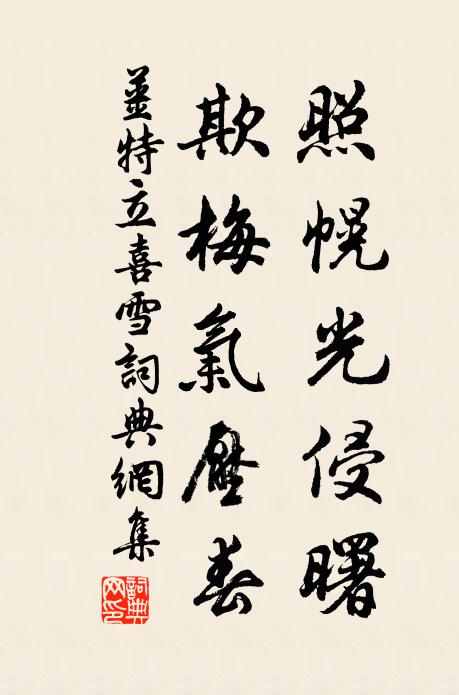 照幌光侵曙
欺梅氣壓春
姜特立喜雪詞典網集
詞典网印